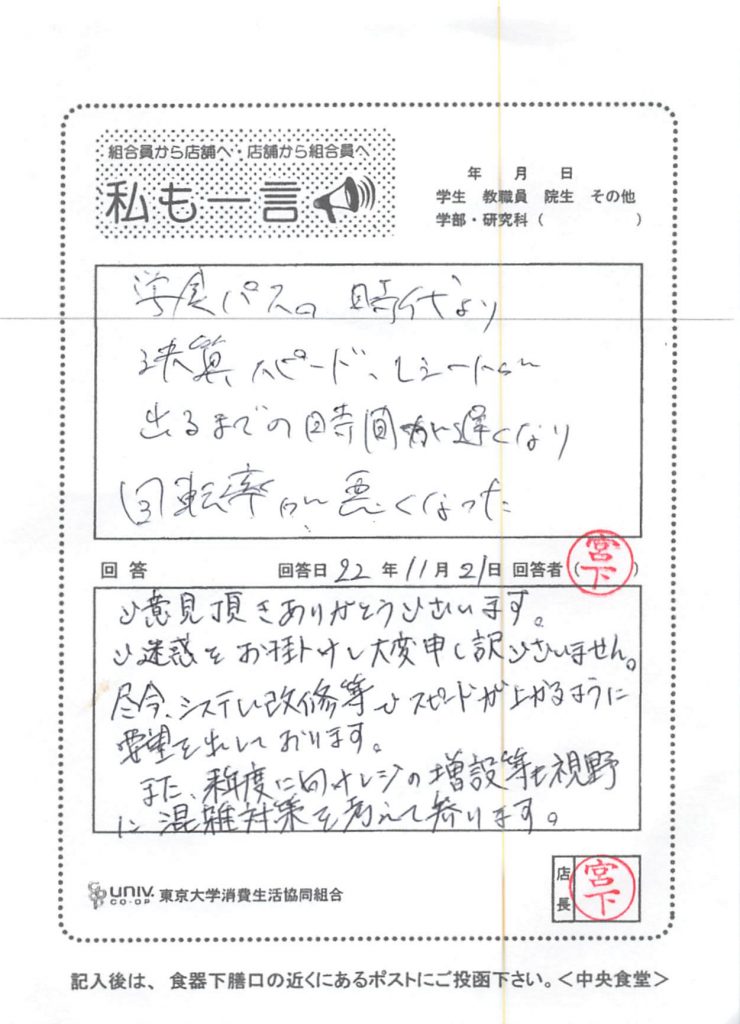 組合員から店舗へ・店舗から組合員へ
私も一言
年 月 日
学生 教職員 院生 その他
学部・研究科（ ）
学食パスの時代より
決算スピード、レシートが
出るまでの時間が遅くなり
回転率が悪くなった
回答 回答日 22 年 11 月 21 日 回答者（宮下）
ご意見頂きありがとうございます。
ご迷惑をお掛けし大変申し訳ございません。
システム改修等でスピードが上がるように
要望を出しております。
また、来年度に向けレジの増設等も視野
に混雑対策を考えて参ります。
UNIV. CO-OP 東京大学消費生活協同組合
店長 宮下
記入後は、食器下膳口の近くにあるポストにご投函下さい。＜中央食堂＞